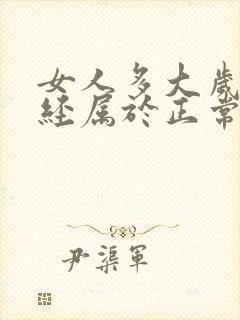 女人多大歲
經屬於正常
尹渠軍